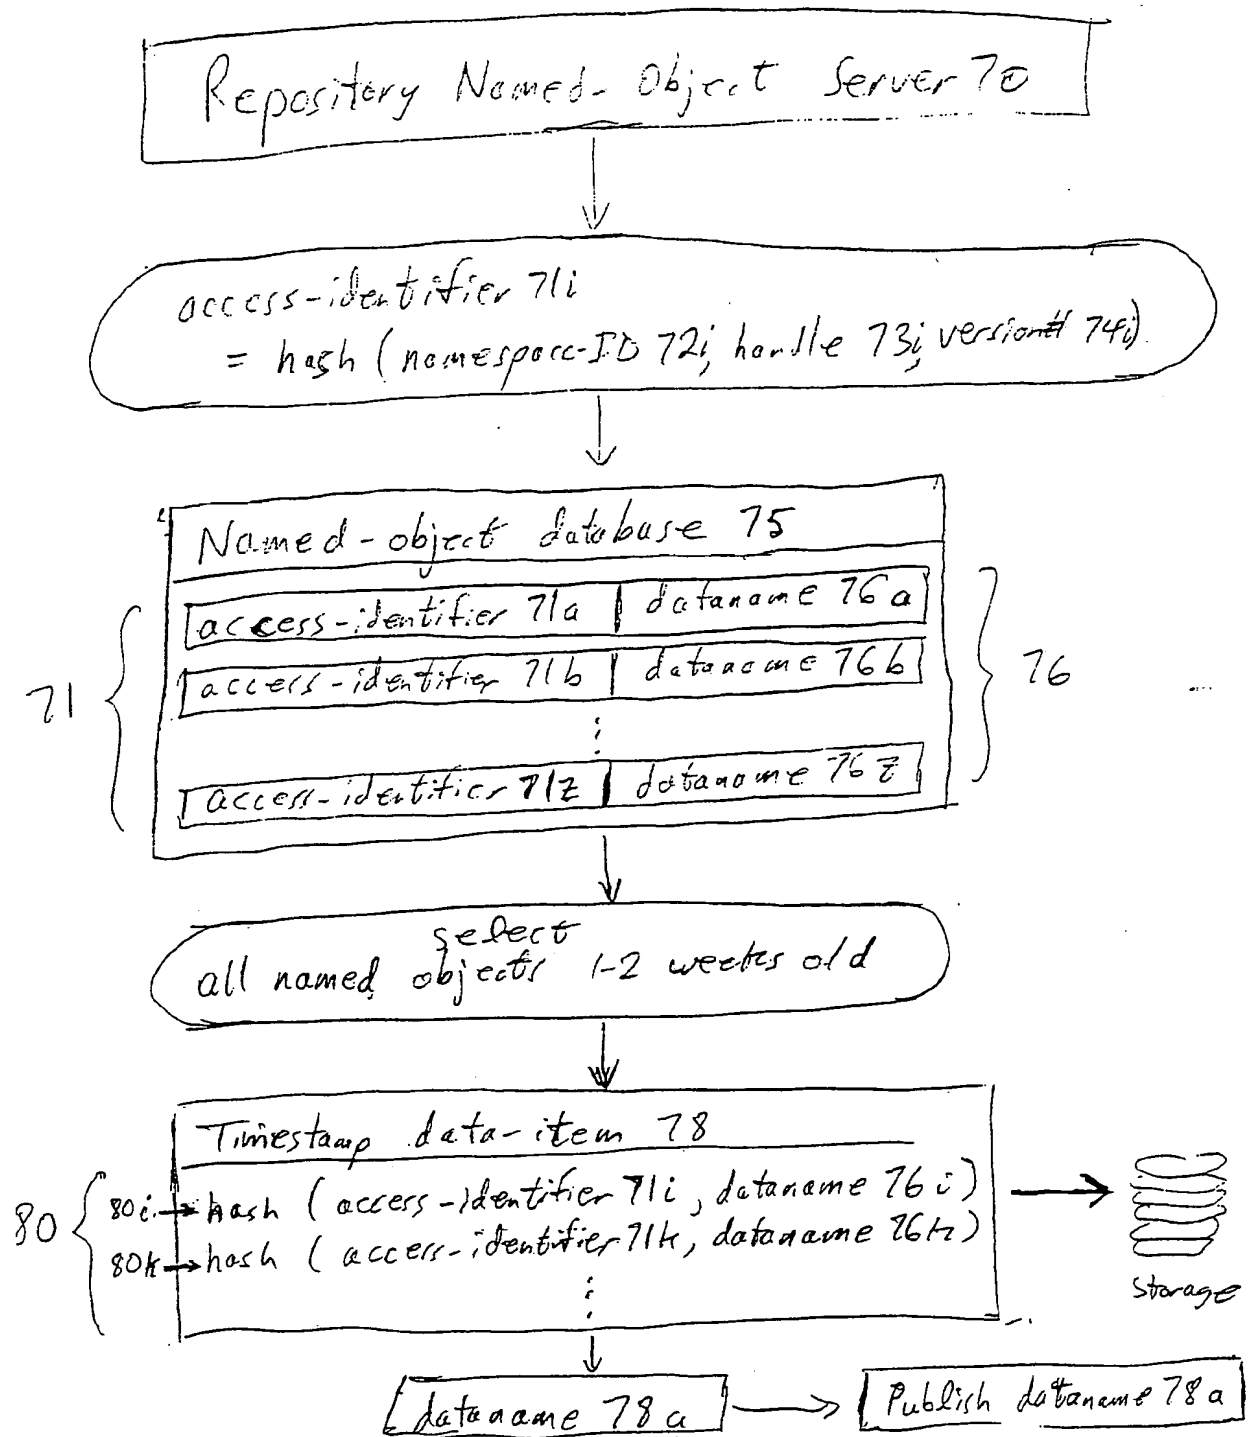 Repository Named-Object Server 70
access-identifier 71i
= hash (namespace-ID 72i, handle 73i, version# 74i)
Named-object database 75
access-identifier 71a | dataname 76a
access-identifier 71b | dataname 76b
71
76
access-identifier 71z | dataname 76z
select
all named objects 1-2 weeks old
Timestamp data-item 78
80
80i → hash (access-identifier 71i, dataname 76i)
80k → hash (access-identifier 71k, dataname 76k)
Storage
dataname 78a
Publish dataname 78a